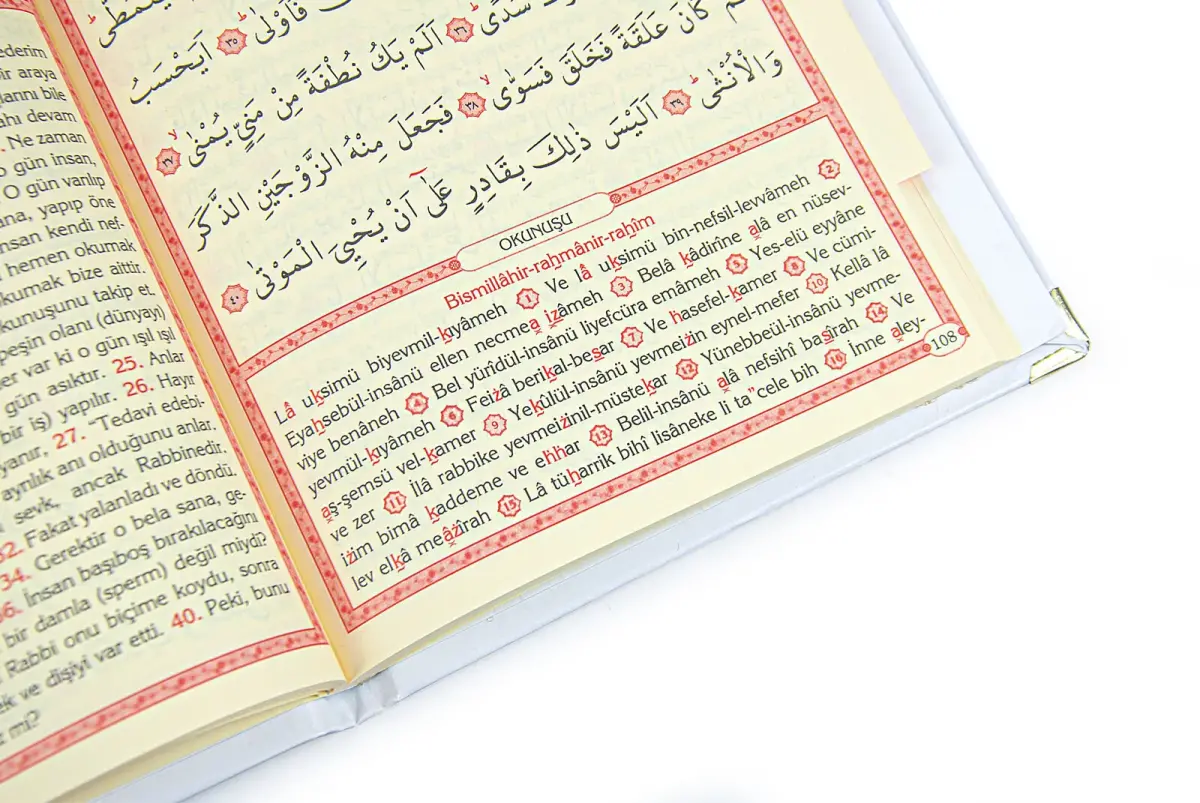 ederim
bir araya
larını bile
ahı devam
Ne zaman
o gün insan,
O gün varılıp
ana, yapıp öne
insan kendi nef-
hemen okumak
kumak bize aittir.
kunuşunu takip et.
peşin olanı (dünyayı)
ğer var ki o gün ışıl ışıl
gün asıktır. 25. Anlar
bir iş) yapılır. 26. Hayır
yanır, 27. “Tedavi edebi-
ayrılık anı olduğunu anlar.
sevk, ancak Rabbinedir.
32. Fakat yalanladı ve döndü.
34. Gerektir o bela sana, ge-
36. İnsan başıboş bırakılacağını
bir damla (sperm) değil miydi?
Rabbi onu biçime koydu, sonra
ek ve dişiyi var etti. 40. Peki, bunu
mi?
فَاَوْلٰى ﴿٣٥﴾ اَيَحْسَبُ
سُدًى ﴿٣٦﴾ اَلَمْ يَكُ نُطْفَةً مِنْ مَنِيٍّ يُمْنٰى ﴿٣٧﴾
كَانَ عَلَقَةً فَخَلَقَ فَسَوّٰى ﴿٣٨﴾ فَجَعَلَ مِنْهُ الزَّوْجَيْنِ الذَّكَرَ
وَالْاُنْثٰى ﴿٣٩﴾ اَلَيْسَ ذٰلِكَ بِقَادِرٍ عَلٰٓى اَنْ يُحْيِيَ الْمَوْتٰى ﴿٤٠﴾
OKUNUŞU
Bismillâhir-rahmânir-rahîm
Lâ uksimü biyevmil-kıyâmeh 1 Ve lâ uksimü bin-nefsil-levvâmeh 2
Eyahsebül-insânü ellen necmea ızâmeh 3 Belâ kâdirîne alâ en nüsev-
viye benâneh 4 Bel yürîdül-insânü liyefcüra emâmeh 5 Yes-elü eyyâne
yevmül-kıyâmeh 6 Feiżâ berikal-besar 7 Ve hasefel-kamer 8 Ve cümi-
aş-şemsü vel-kamer 9 Yekûlül-insânü yevmeiżin eynel-mefer 10 Kellâ lâ
ve zer 11 İlâ rabbike yevmeiżinil-müstekar 12 Yünebbeül-insânü yevme-
iżim bimâ kaddeme ve ehhar 13 Belil-insânü alâ nefsihî basîrah 14 Ve
lev elkâ meâżîrah 15 Lâ tüharrik bihî lisâneke li ta”cele bih 16 İnne aley-
108